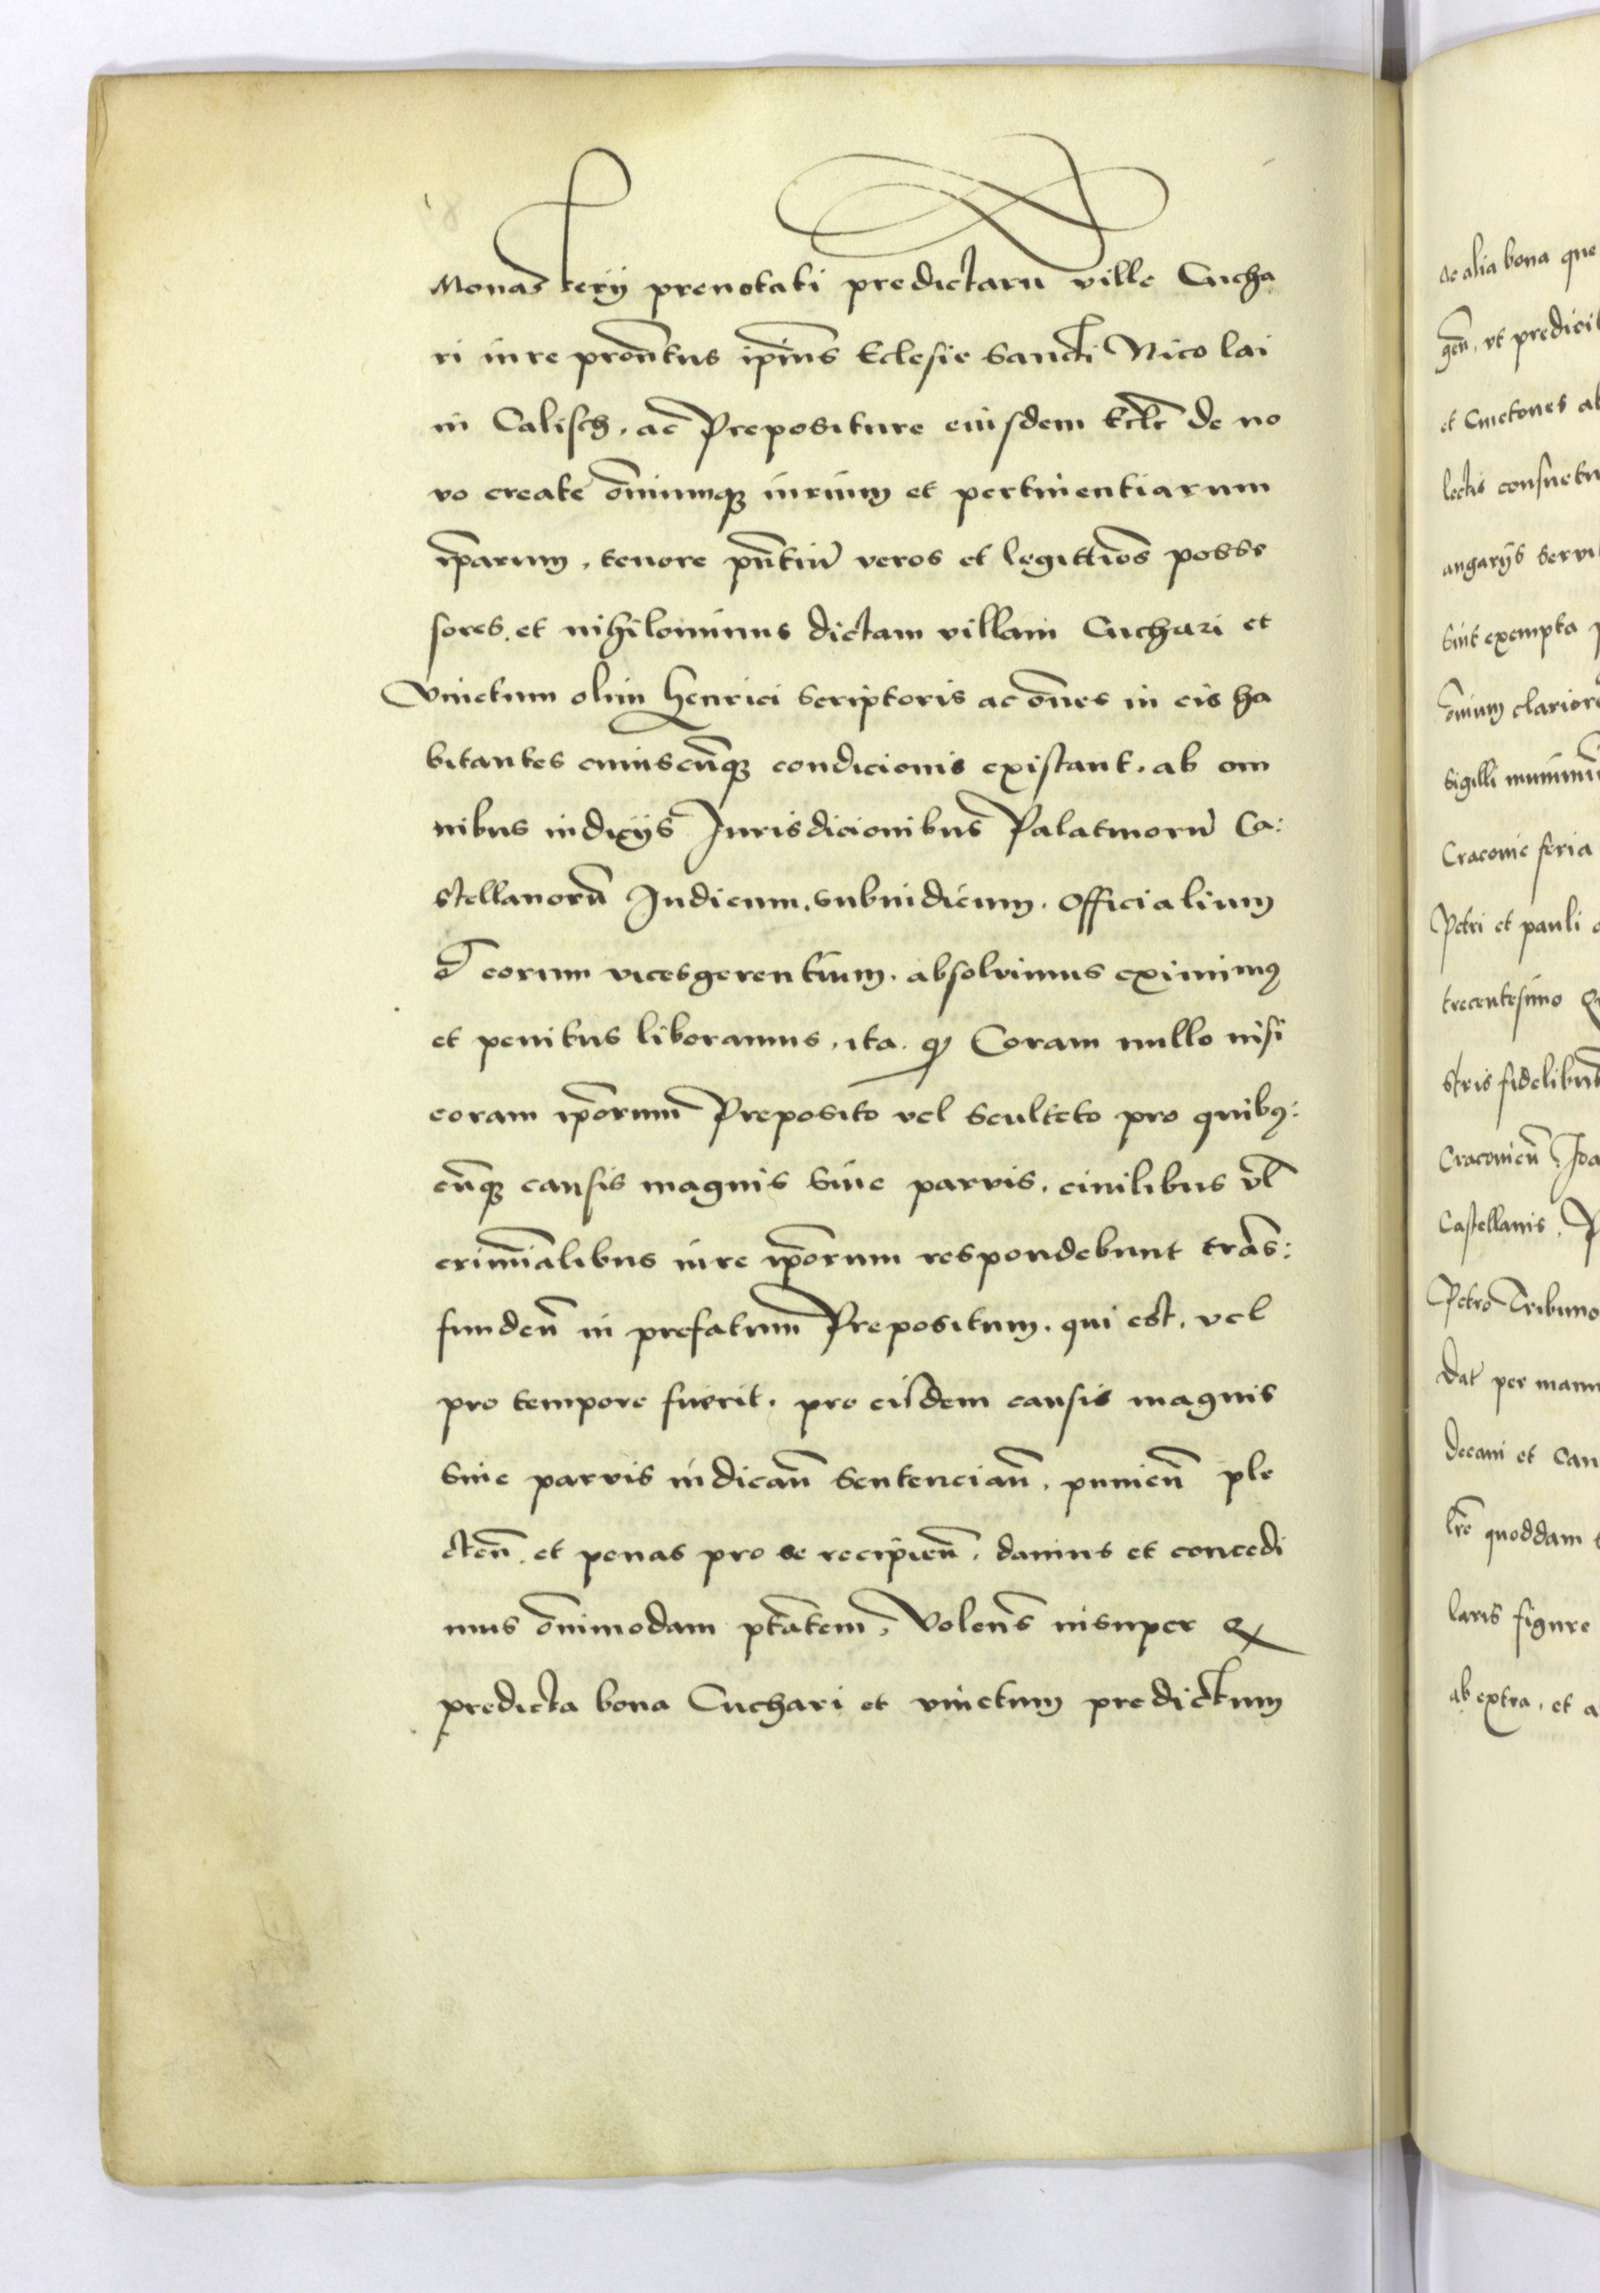 Monasterÿ prenotati predictarū ville Cucha
ri iure pron̄tus ip̄ius Eclesie Sancti Nicolai
in Calisch. ac Prepositure eiusdem Ecl̄e de no
vo create om̄iumq; iurium et pertinentiarum
ip̄arum, tenore pn̄tiū veros et legittīos posse
sores. et nihilominus dictam villam Cuchari et
Vinetum olim Henrici Scriptoris ac om̄es in eis ha
bitantes cuiuscūq; condicionis existant. ab om
nibus iudicÿs Jurisdicionibus Palatinorū Ca:
stellanorū Judicum, subiudicum. officialium
et eorum vicesgerentium. absolvimus eximimꝰ
et penitus liberamus, ita. qꝫ Coram nullo nisi
coram ip̄orum Preposito vel Sculteto pro quibꝰ:
cūq; causis magnis Siue parvis. ciuilibus vl̄
crimīalibus iure ip̄orum respondebunt trās:
funden̄ in prefatum Prepositum. qui est. vel
pro tempore fuerit. pro eisdem causis magnis
Siue parvis iudican̄ Sentencian̄, punien̄ ple
cten̄. et penas pro se recipien̄. damus et concedi
mus om̄imodam ptātem, Volen̄s insuper qꝫ
predicta bona Cuchari et vinetum predictum
ac alia bona que
gen̄, vt predicit
et Cmetones ab
lectis consuetu
angarÿs servi
Sint exempta
om̄ium clarior
Sigilli munimi
Cracovie feria
Petri et pauli
trecentesimo
stris fidelibus
Cracovien̄ Joa
Castellanis. P
Petro Tribuno
Dat̄ per manu
Decani et Can
lr̄e quoddam
laris figure
ab extra, et a